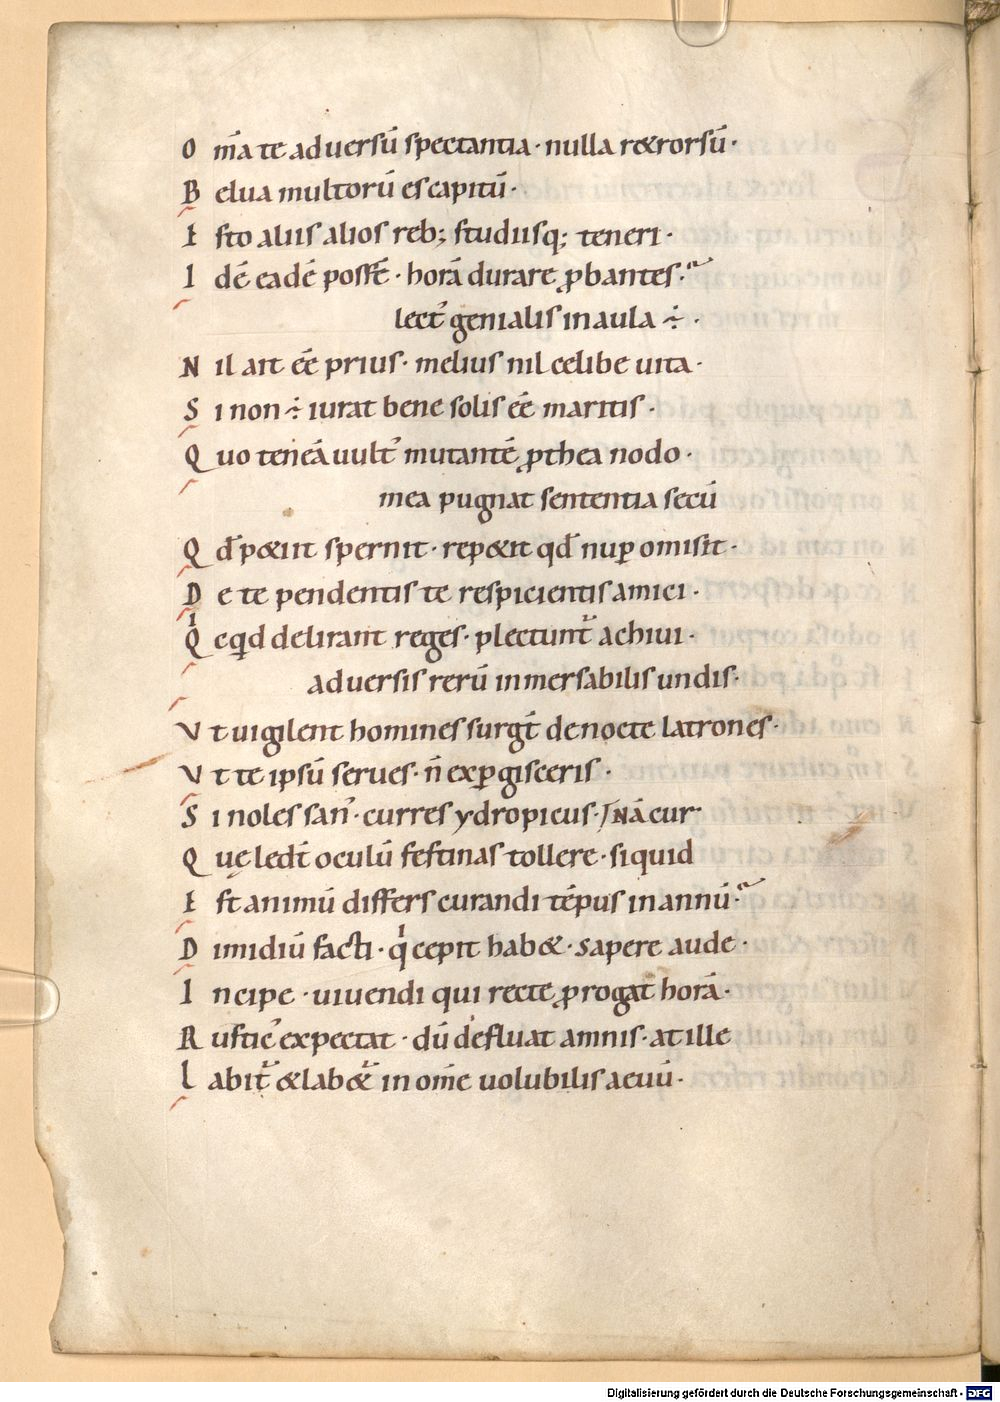 O m̄a te aduersū spectantia · nulla r&rorsū ·
B elua multorū es capitū ·
E sto aliis alios reb; studiisq; teneri ·
I dē eadē possē · horā durare ꝓbantes ·
lect᷒ genialis in aula ÷ ·
N il ait ēē prius · melius nil celibe uita ·
S i non ÷ iurat bene solis ēē maritis ·
Q uo teneā uult᷒ mutantē ꝓthea nodo ·
mea pugnat sententia secū
Q đ p&iit spernit · rep&it qđ nuꝑ omisit ·
D e te pendentis te respicientis amici ·
Q ͥcqͥd delirant reges · plectunt᷑ achiui ·
aduersis rerū inmersabilis undis ·
V t uigilent homines surgt̄ de nocte latrones ·
V t te ipsū serues · n̄ exꝑgisceris ·
S i noles san᷒ · curres ydropicus · / NĀ cur
Q uę ledt̄ oculū festinas tollere · siquid
E st animū differs curandi tēpus in annū ·
D imidiū facti · qͥ cepit hab& · sapere aude ·
I ncipe · uiuendi qui recte ꝓrogat horā ·
R ustic᷒ expectat · dū defluat amnis · at ille
L abit᷑ & lab&᷑ in om̄e uolubilis aeuū ·
Digitalisierung gefördert durch die Deutsche Forschungsgemeinschaft - DFG